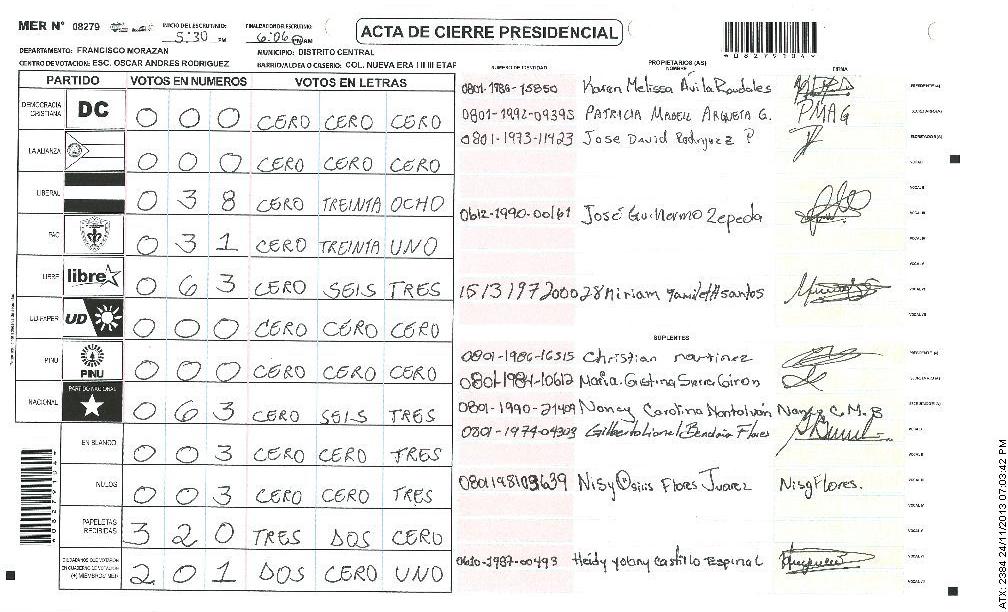 MER N° 08279 INICIO DEL ESCRUTINIO: 5:30 PM FINALIZACION DEL ESCRUTINIO: 6:06 PM AM
ACTA DE CIERRE PRESIDENCIAL
08279104
DEPARTAMENTO: FRANCISCO MORAZAN MUNICIPIO: DISTRITO CENTRAL
CENTRO DE VOTACION: ESC. OSCAR ANDRES RODRIGUEZ BARRIO/ALDEA O CASERIO: COL. NUEVA ERA I II III ETAP
PARTIDO VOTOS EN NUMEROS VOTOS EN LETRAS
DEMOCRACIA CRISTIANA DC 0 0 0 CERO CERO CERO
LA ALIANZA 0 0 0 CERO CERO CERO
LIBERAL 0 3 8 CERO TREINTA OCHO
PAC 0 3 1 CERO TREINTA UNO
LIBRE libre 0 6 3 CERO SEIS TRES
UD FAPER UD 0 0 0 CERO CERO CERO
PINU PINU 0 0 0 CERO CERO CERO
NACIONAL PARTIDO NACIONAL 0 6 3 CERO SEIS TRES
EN BLANCO 0 0 3 CERO CERO TRES
NULOS 0 0 3 CERO CERO TRES
PAPELETAS RECIBIDAS 3 2 0 TRES DOS CERO
CIUDADANOS QUE VOTARON EN CUADERNO DE VOTACION (+) MIEMBROS MER 2 0 1 DOS CERO UNO
NUMERO DE IDENTIDAD PROPIETARIOS (AS) NOMBRE FIRMA
0801-1986-15850 Karen Melissa Ávila Raudales
0801-1992-09395 PATRICIA MABELL ARGUETA G. PMAG
0801-1973-11923 Jose David Rodriguez P
0612-1990-00161 José Guillermo Zepeda
1513197200028 Miriam Yamilet santos
SUPLENTES
0801-1986-16515 Christian martinez
0801-1984-10612 Maria Cristina Sierra Giron
0801-1990-21409 Nancy Carolina Montalván Nancy C. M. B
0801-1974-04303 Gilberto Lionel Bendaña Flores
Flores Juarez Nisy Flores.
Heidy Yolany Castillo Espinal
08279104
ATX: 2384 24/11/2013 07:03:42 PM